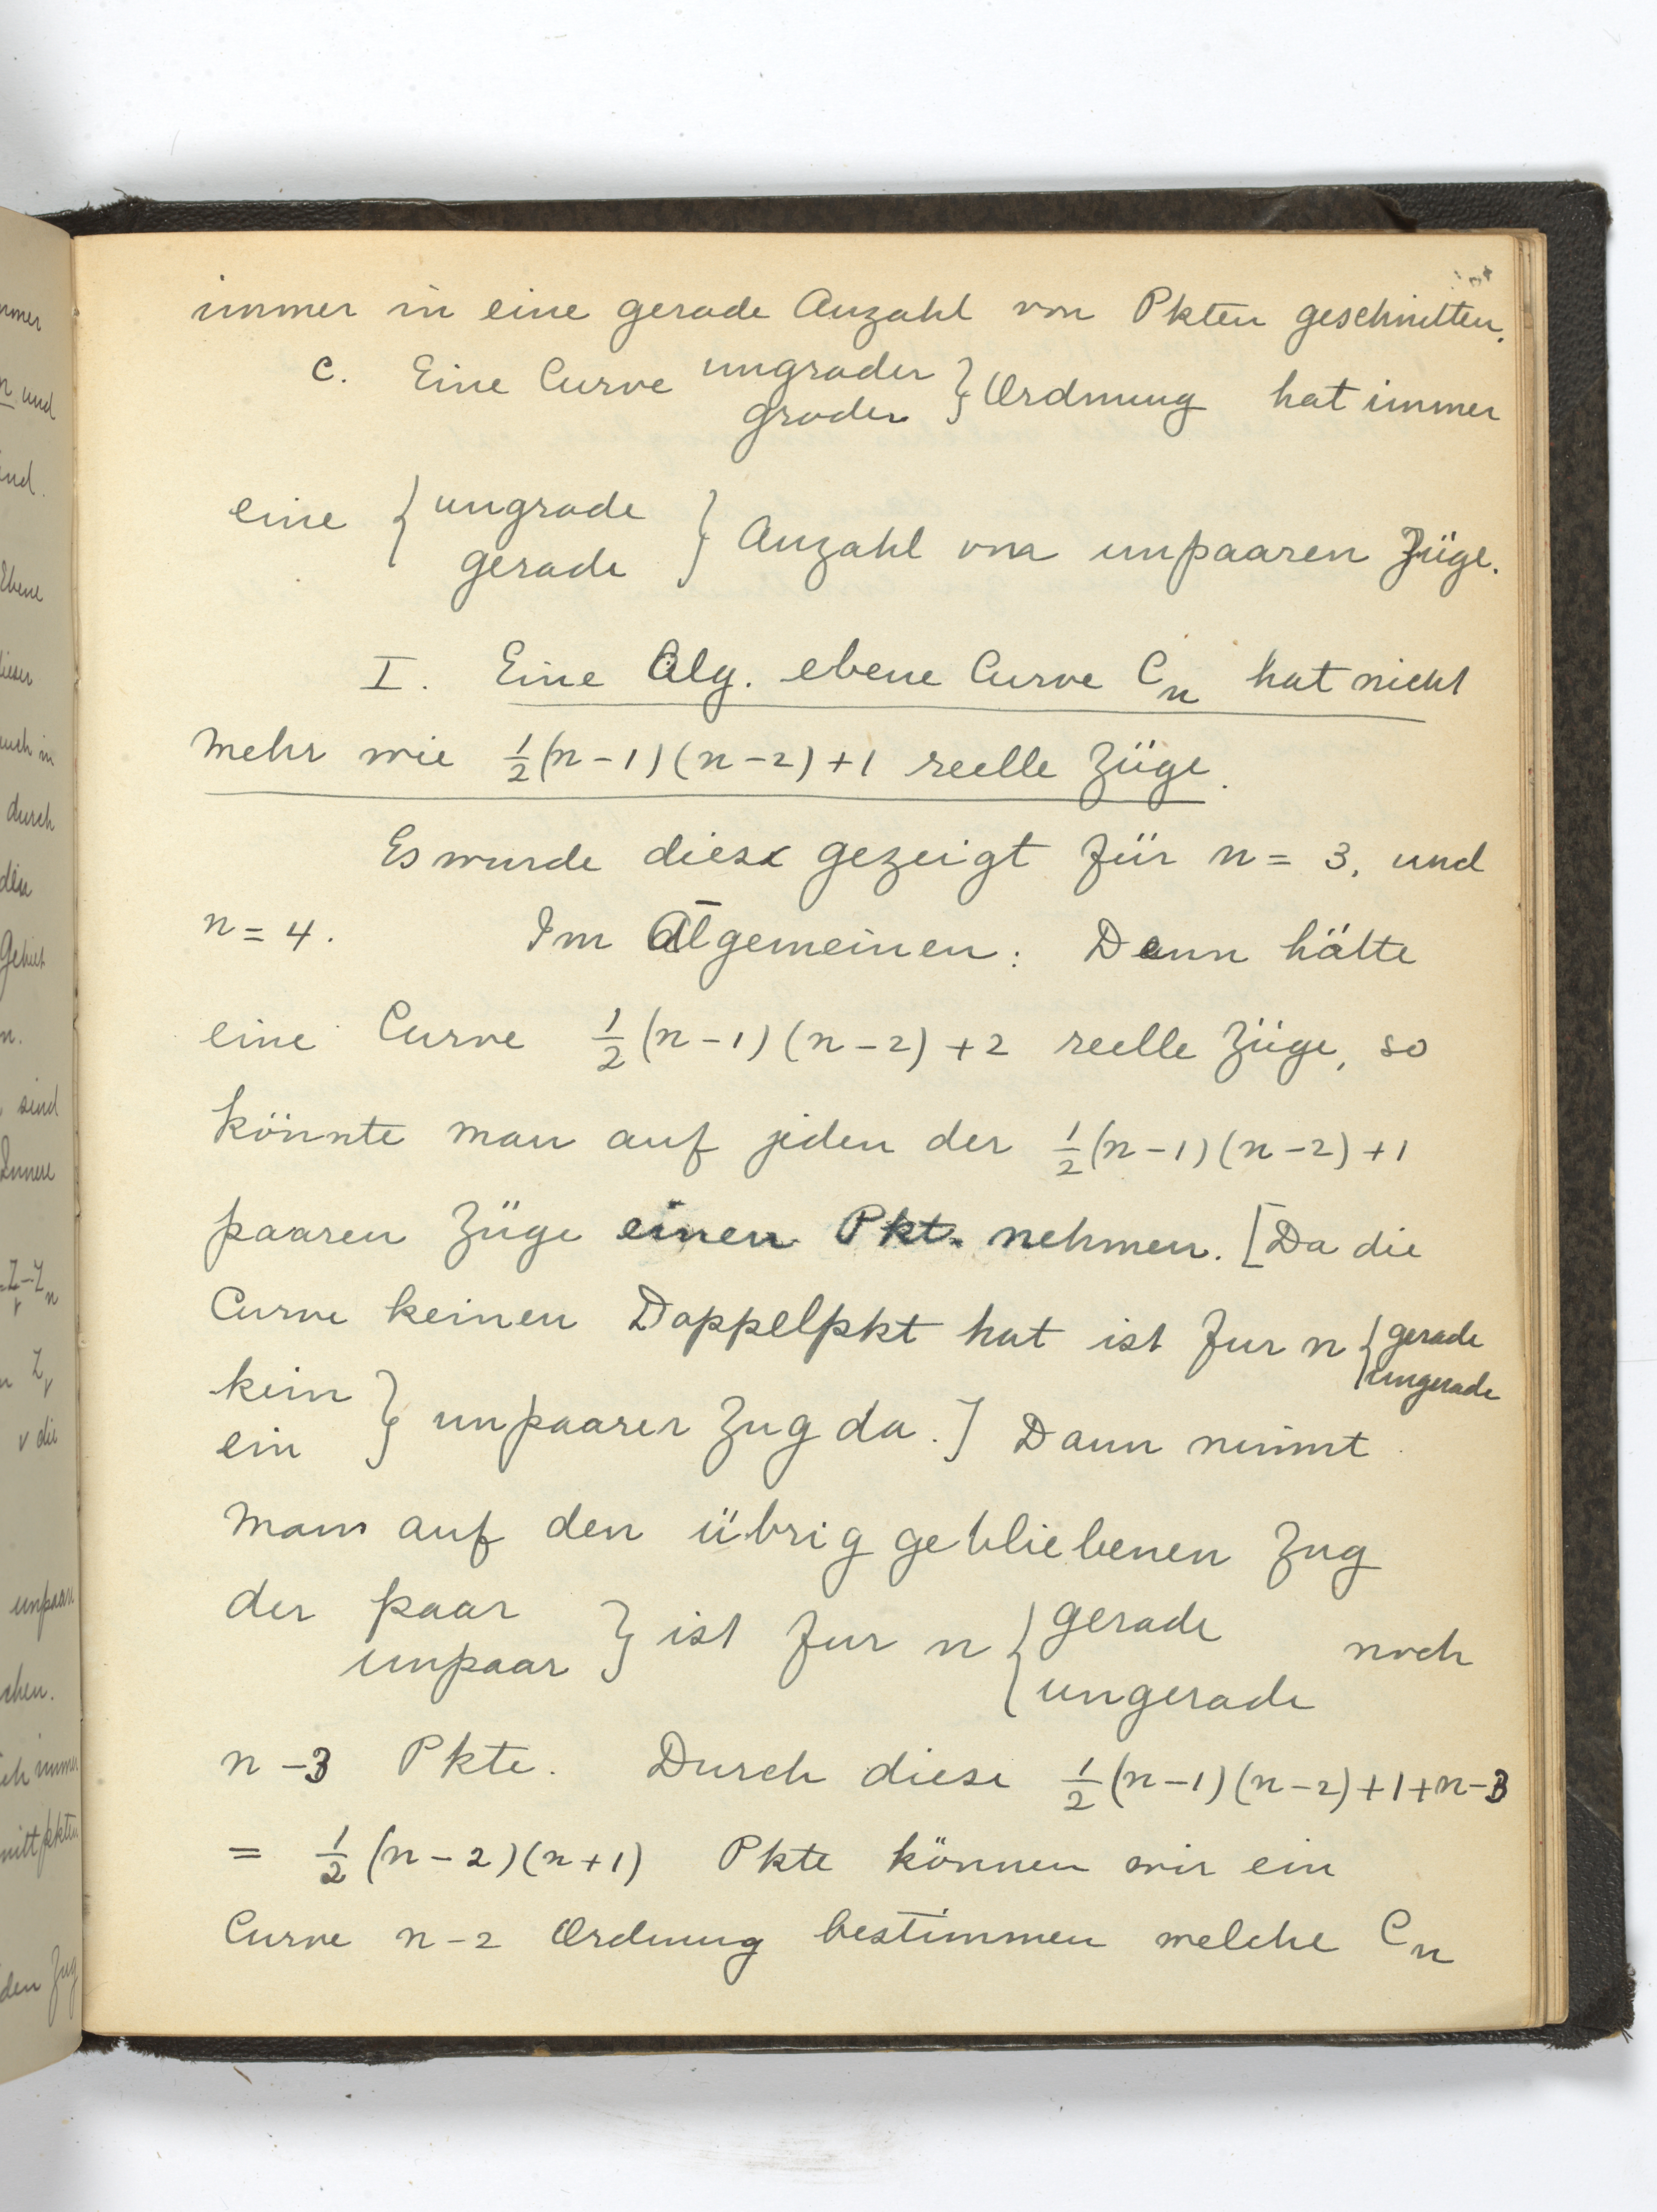 immer in eine gerade Anzahl von Pkten geschnitten.
c. Eine Curve ungrader
grader } Ordnung hat immer
eine { ungrade
gerade } Anzahl von unpaaren Züge.
I. Eine Alg. ebene Curve Cn hat nicht
mehr wie 1/2(n-1)(n-2)+1 reelle Züge.
Es wurde dies gezeigt für n = 3, und
n = 4. Im Algemeinen: Denn hätte
eine Curve 1/2(n-1)(n-2)+2 reelle Züge, so
könnte man auf jeden der 1/2(n-1)(n-2)+1
paaren Züge einen Pkt. nehmen. [Da die
Curve keinen Doppelpkt hat ist fur n { gerade
ungerade
kein
ein } unpaarer Zug da.] Dann nimmt
man auf den übrig gebliebenen Zug
der paar
unpaar } ist fur n { gerade
ungerade noch
n-3 Pkte. Durch diese 1/2(n-1)(n-2)+1+n-3
= 1/2(n-2)(n+1) Pkte können wir ein
Curve n-2 Ordnung bestimmen welche Cn